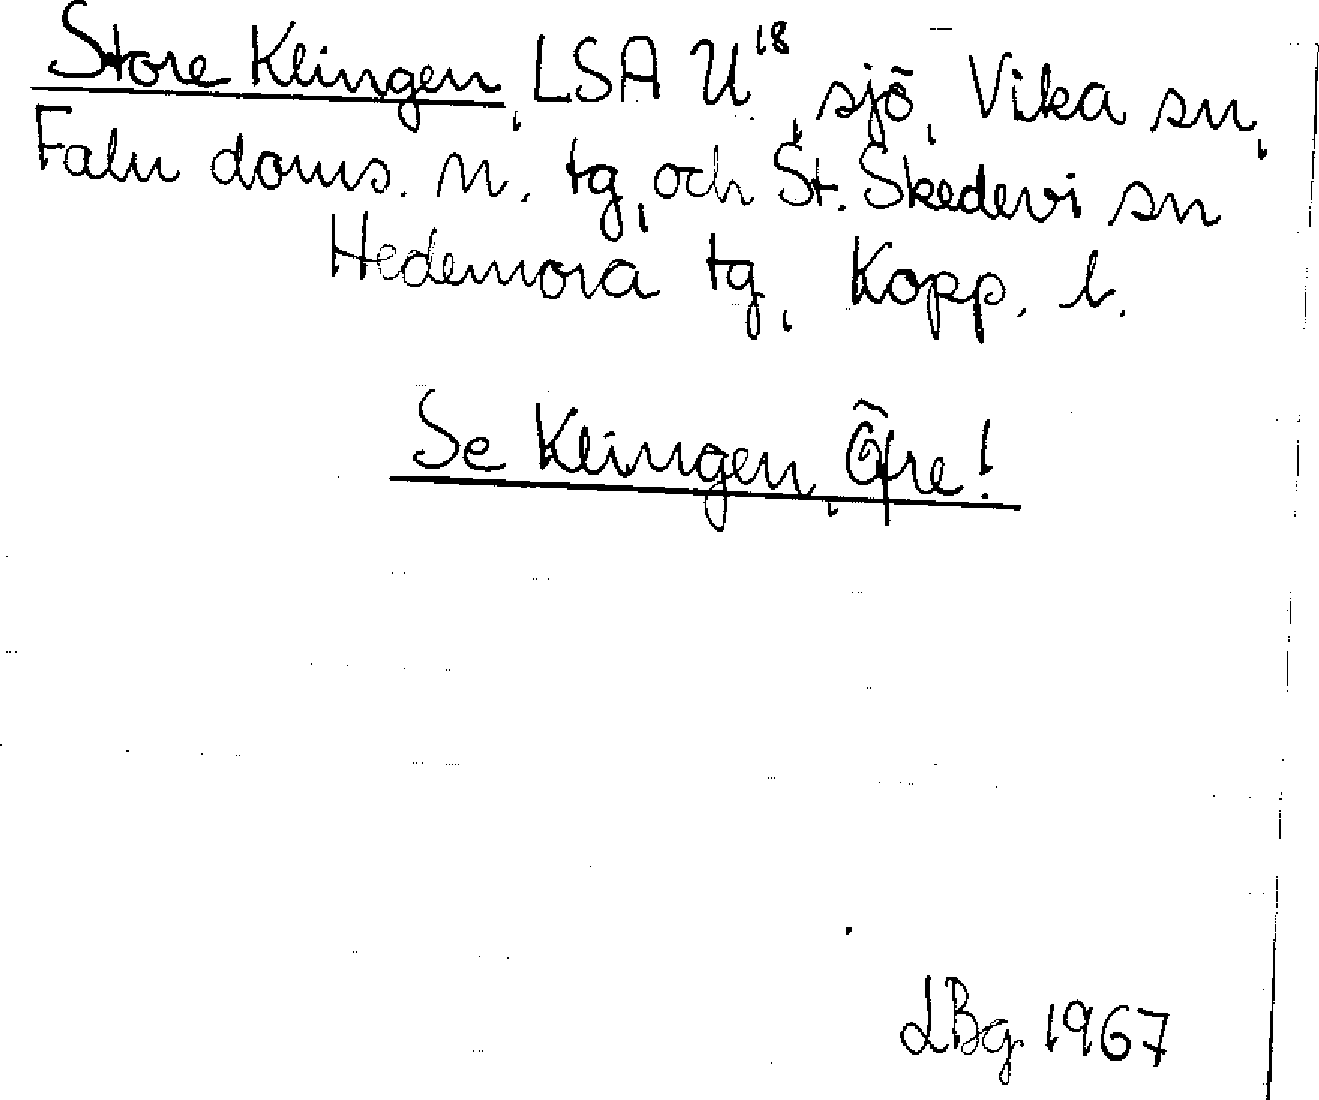 Store Klingen, LSA U¹⁸, sjö, Vika sn,
Falu doms. n. tg, och St. Skedevi sn
Hedemora tg, Kopp. l.
Se Klingen, Öfre!
LBg 1967